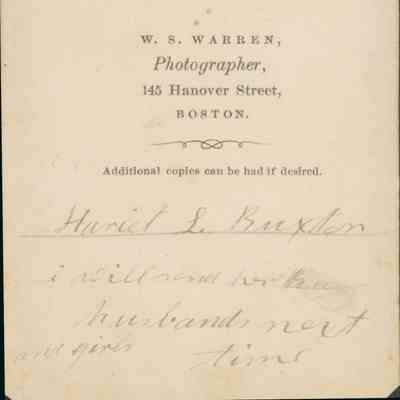 W. S. WARREN,
Photographer,
145 Hanover Street,
BOSTON.
Additional copies can be had if desired.
Hariet L. Buxton
i will send her
husbands next
and girls time